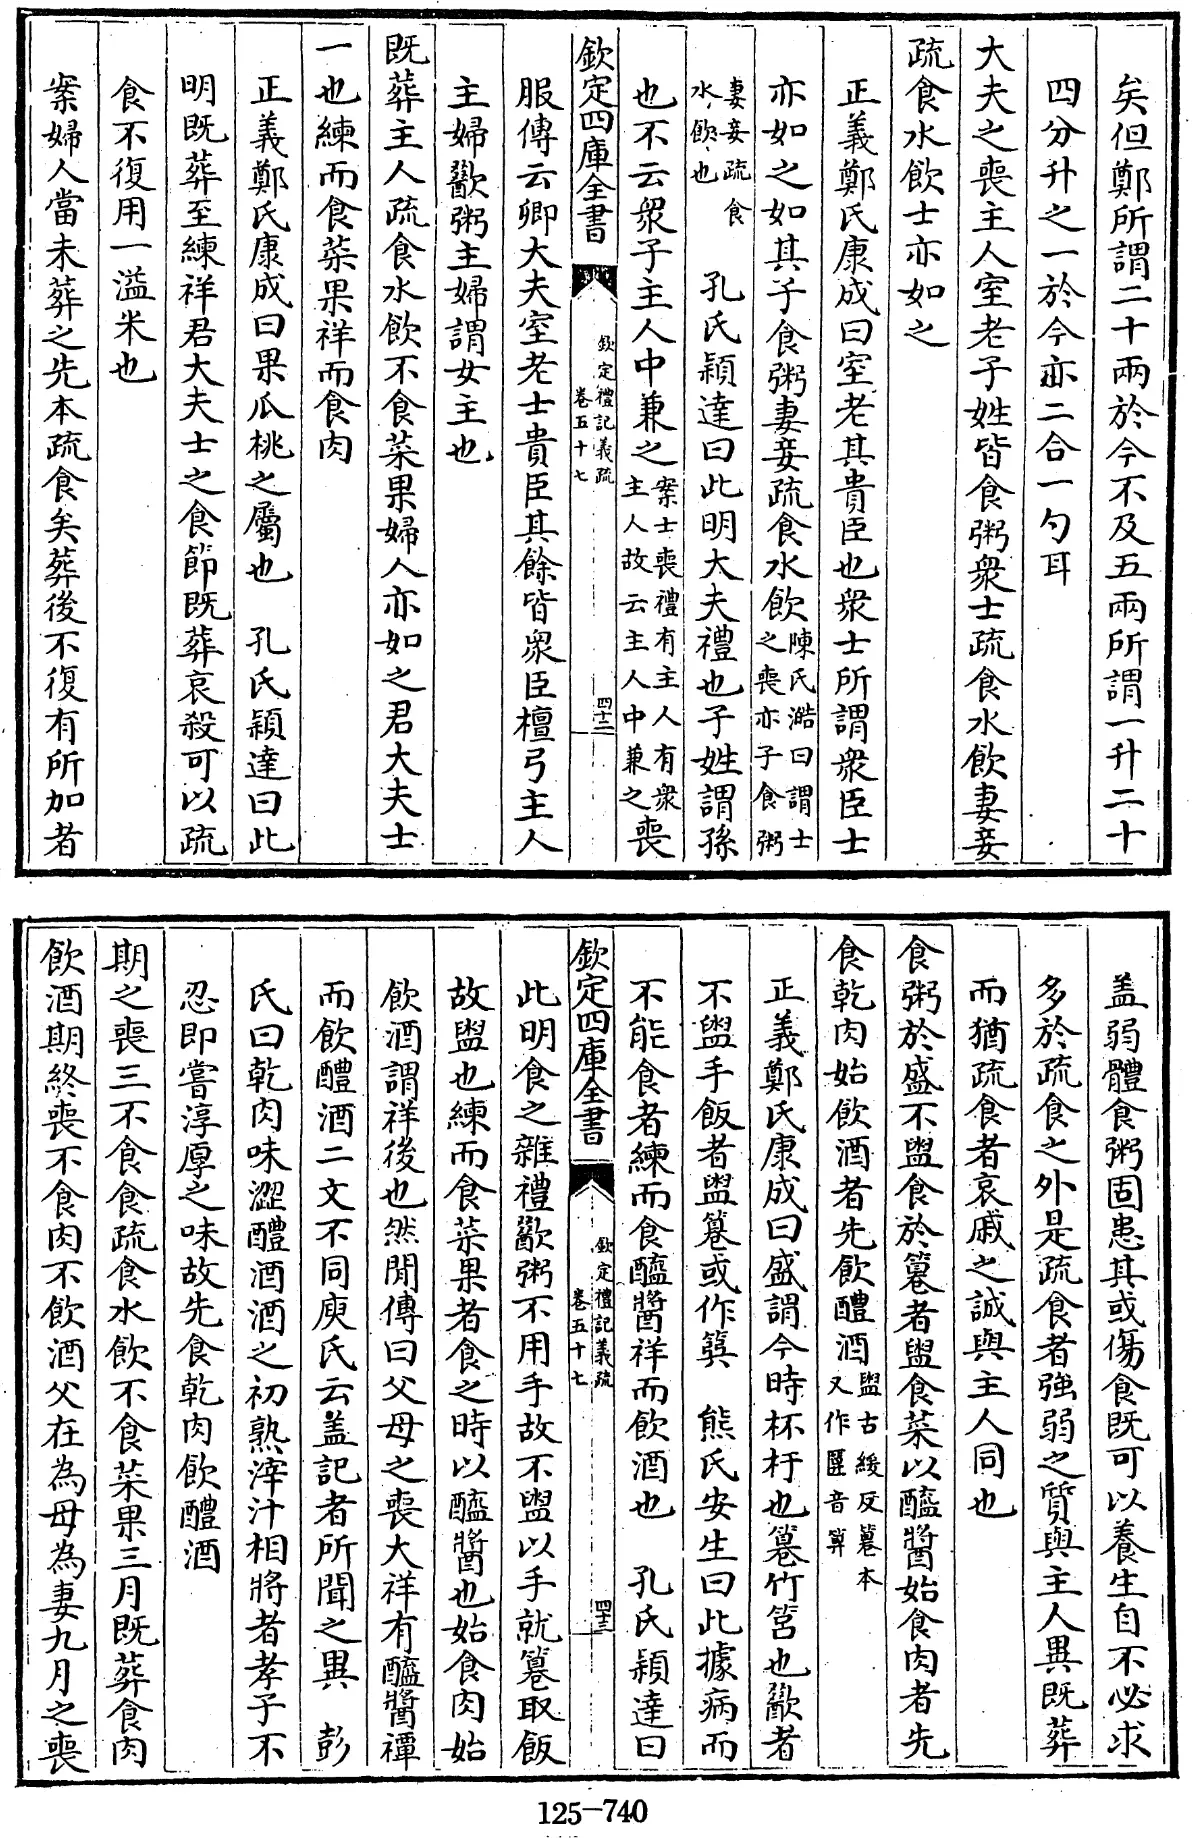 矣但鄭所謂二十兩於今不及五兩所謂一升二十
四分升之一於今亦二合一勺耳
大夫之喪主人室老子姓皆食粥衆士疏食水飲妻妾
疏食水飲士亦如之
正義鄭氏康成曰室老其貴臣也衆士所謂衆臣士
亦如之如其子食粥妻妾疏食水飲陳氏澔曰謂士之喪亦子食粥
妻妾疏食水飲也 孔氏穎達曰此明大夫禮也子姓謂孫
也不云衆子主人中兼之案士喪禮有主人有衆主人故云主人中兼之喪
欽定四庫全書 欽定禮記義疏 卷五十七 四十二
服傳云卿大夫室老士貴臣其餘皆衆臣檀弓主人
主婦歠粥主婦謂女主也
既葬主人疏食水飲不食菜果婦人亦如之君大夫士
一也練而食菜果祥而食肉
正義鄭氏康成曰果瓜桃之屬也 孔氏穎達曰此
明既葬至練祥君大夫士之食節既葬哀殺可以疏
食不復用一溢米也
案婦人當未葬之先本疏食矣葬後不復有所加者
盖弱體食粥固患其或傷食既可以養生自不必求
多於疏食之外是疏食者強弱之質與主人異既葬
而猶疏食者哀戚之誠與主人同也
食粥於盛不盥食於篹者盥食菜以醯醬始食肉者先
食乾肉始飲酒者先飲醴酒盥古緩反篹本又作匴音算
正義鄭氏康成曰盛謂今時杯杅也篹竹筥也歠者
不盥手飯者盥篹或作簨 熊氏安生曰此據病而
不能食者練而食醯醬祥而飲酒也 孔氏穎達曰
欽定四庫全書 欽定禮記義疏 卷五十七 四十三
此明食之雜禮歠粥不用手故不盥以手就篹取飯
故盥也練而食菜果者食之時以醯醬也始食肉始
飲酒謂祥後也然閒傳曰父母之喪大祥有醯醬禫
而飲醴酒二文不同庾氏云盖記者所聞之異 彭
氏曰乾肉味澀醴酒酒之初熟滓汁相將者孝子不
忍即嘗淳厚之味故先食乾肉飲醴酒
期之喪三不食食疏食水飲不食菜果三月既葬食肉
飲酒期終喪不食肉不飲酒父在為母為妻九月之喪
125-740